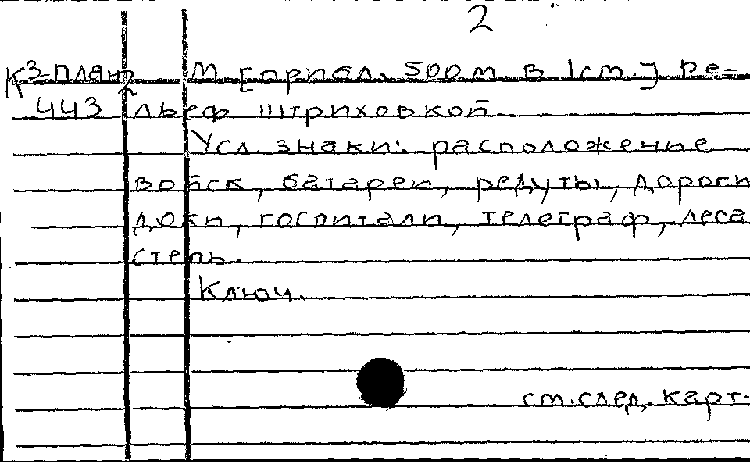 2
К3-план М [прибл. 500м в 1см.] Ре-
443 льеф штриховкой.
Усл. знаки: расположение
войск, батареи, редуты, дороги
доки, госпитали, телеграф, леса
степь.
Ключ.
см. след. карт.